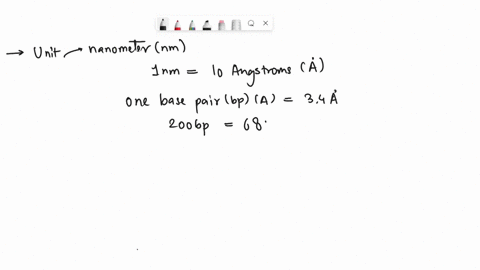 → Unit → nanometer (nm)
1nm = 10 Angstroms (Å)
one base pair (bp) (A) = 3.4 Å
200bp = 68.